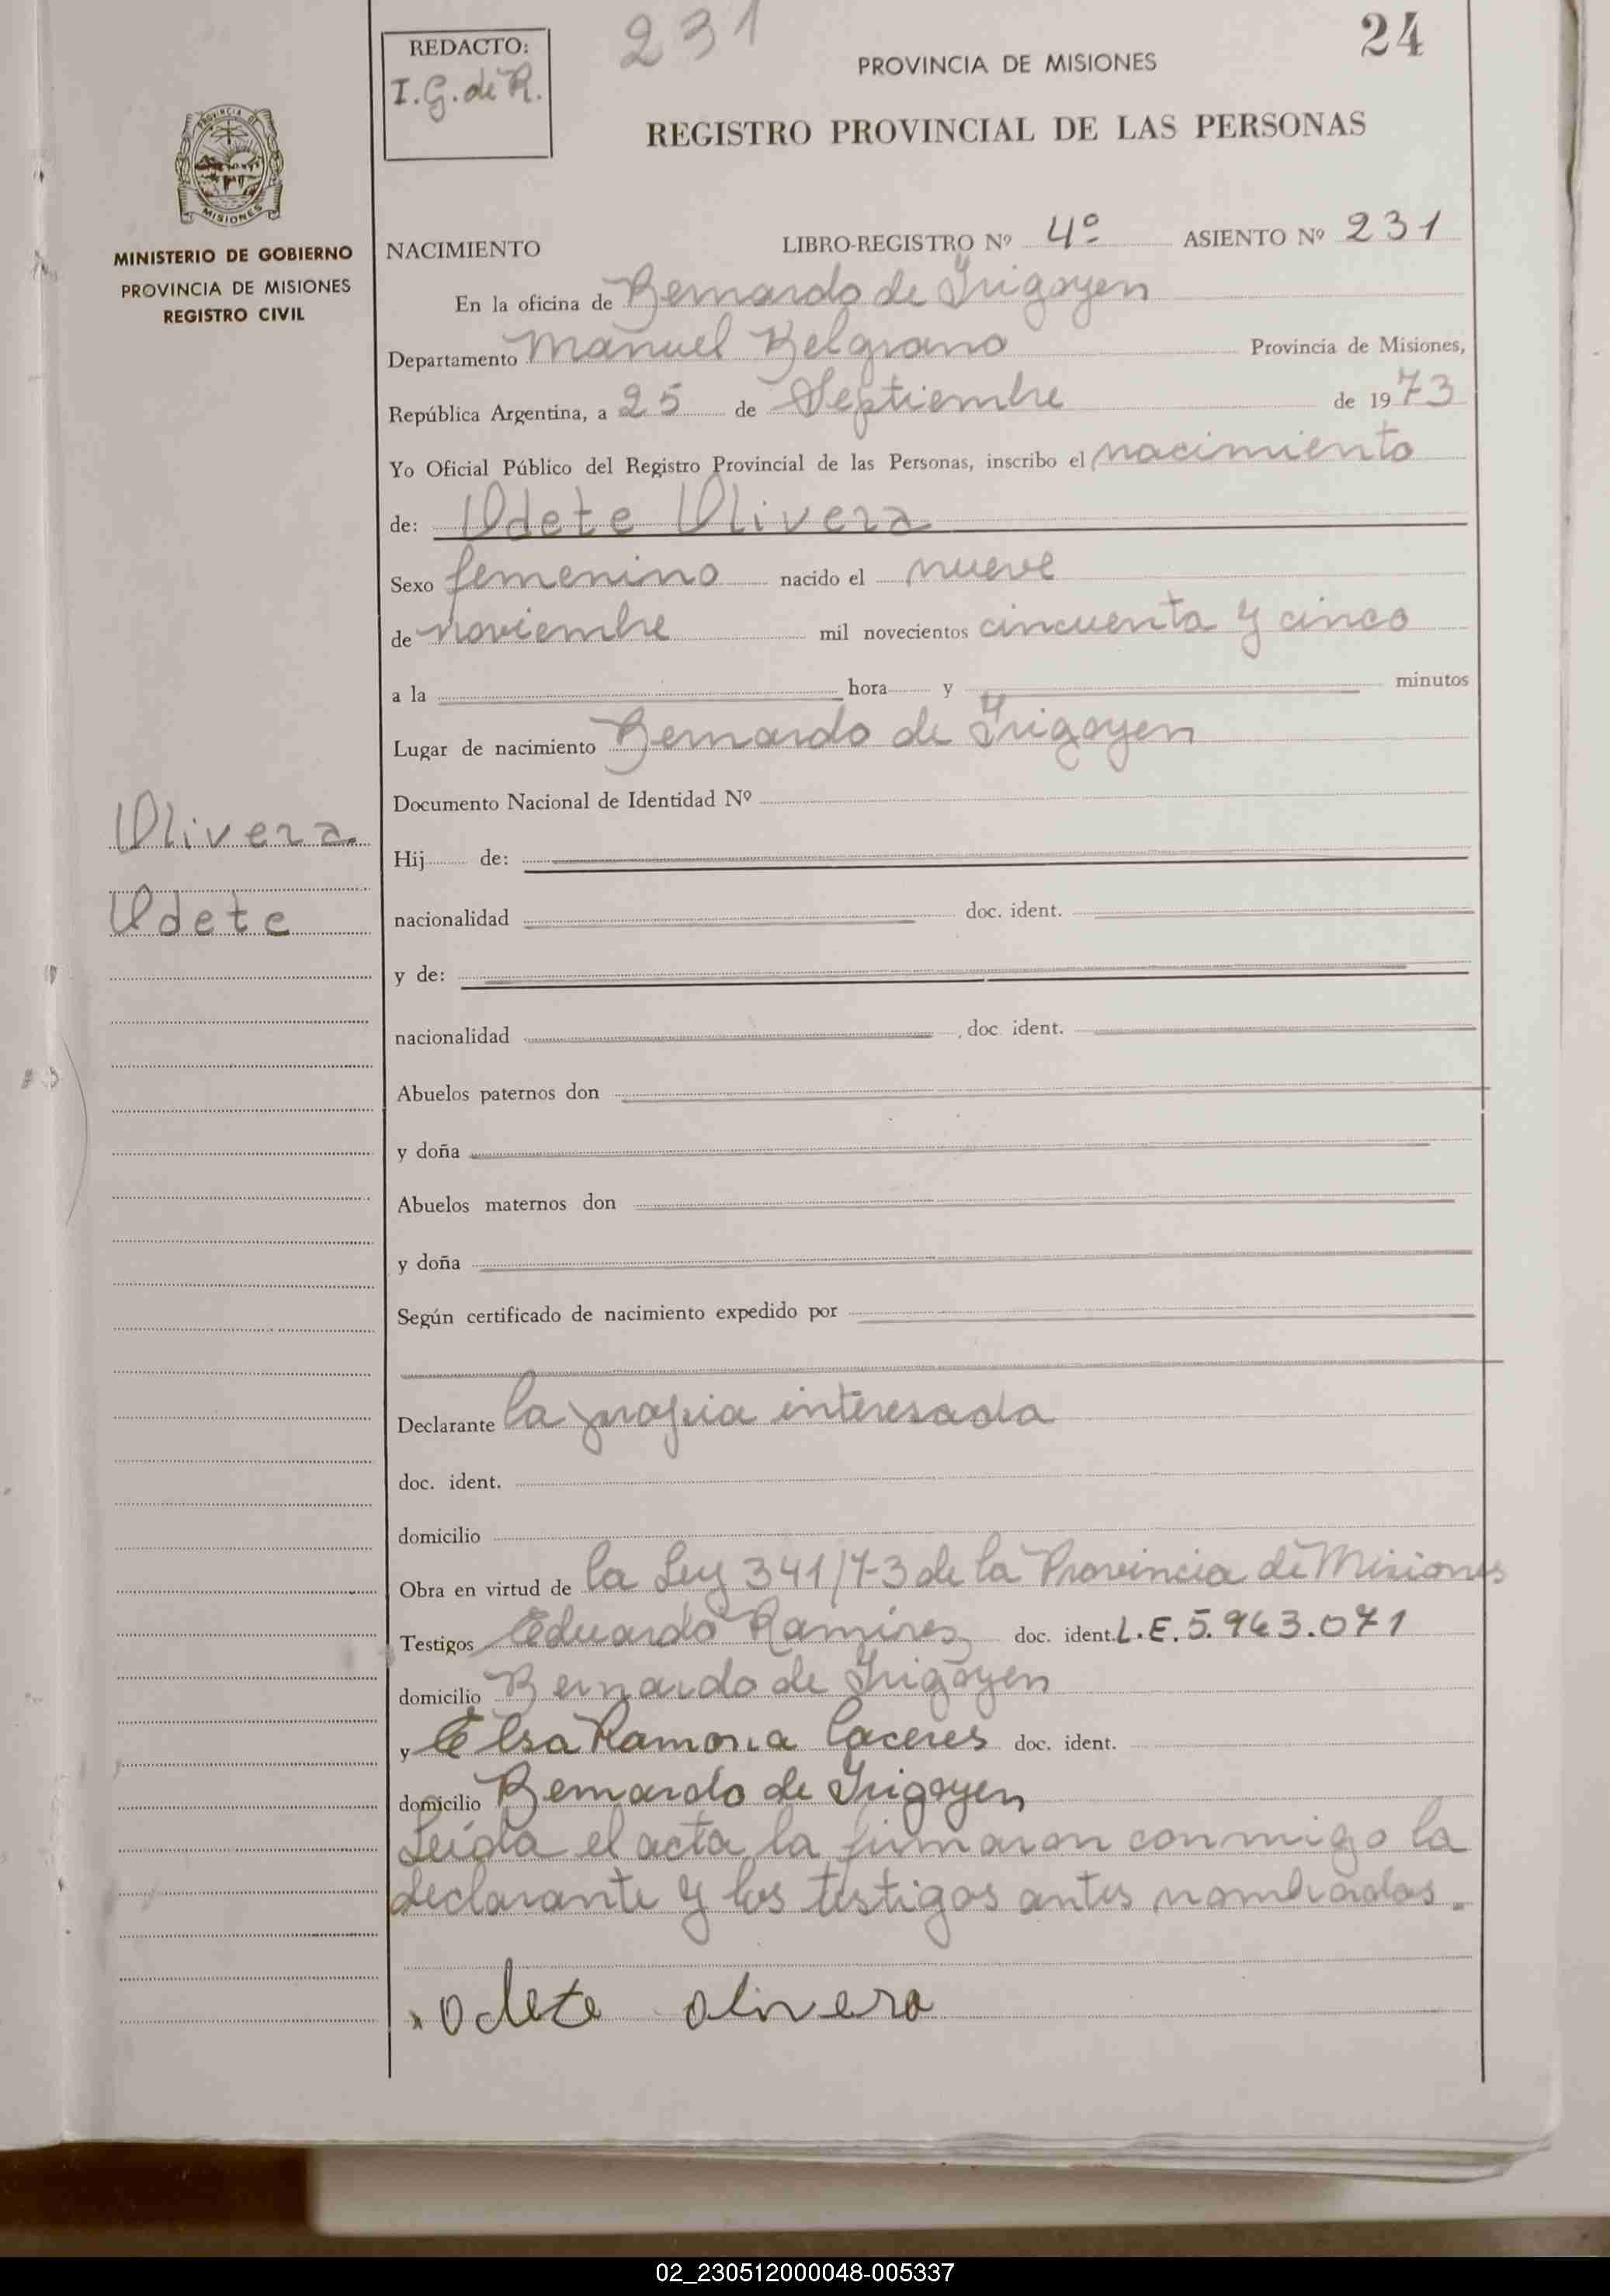 REDACTO:
I.G. de R.
231
24
PROVINCIA DE MISIONES
REGISTRO PROVINCIAL DE LAS PERSONAS
PROVINCIA DE
MISIONES
MINISTERIO DE GOBIERNO
PROVINCIA DE MISIONES
REGISTRO CIVIL
NACIMIENTO LIBRO-REGISTRO Nº 4º ASIENTO Nº 231
En la oficina de Bernardo de Irigoyen
Departamento Manuel Belgrano Provincia de Misiones,
República Argentina, a 25 de Septiembre de 1973
Yo Oficial Público del Registro Provincial de las Personas, inscribo el nacimiento
de: Odete Olivera
Sexo femenino nacido el nueve
de noviembre mil novecientos cincuenta y cinco
a la hora y minutos
Lugar de nacimiento Bernardo de Irigoyen
Documento Nacional de Identidad Nº
Olivera
Odete
Hij de:
nacionalidad doc. ident.
y de:
nacionalidad , doc ident.
Abuelos paternos don
y doña
Abuelos maternos don
y doña
Según certificado de nacimiento expedido por
Declarante la propia interesada
doc. ident.
domicilio
Obra en virtud de la Ley 341/73 de la Provincia de Misiones
Testigos Eduardo Ramirez doc. ident. L.E. 5.963.071
domicilio Bernardo de Irigoyen
y Elsa Ramona Caceres doc. ident.
domicilio Bernardo de Irigoyen
Leída el acta, la firmaron conmigo la
declarante y los testigos antes nombrados.
x odete olivera
02_230512000048-005337